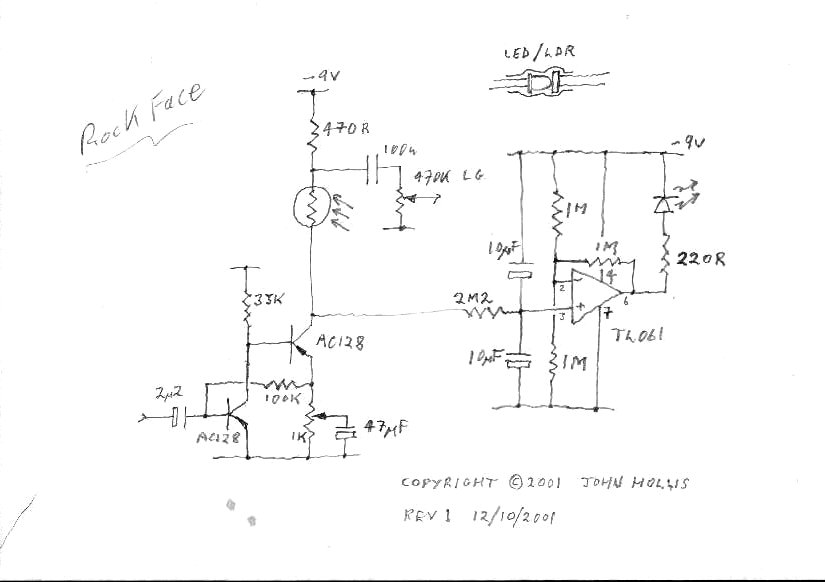 LED/LDR
Rock Face
-9V
470R
100n
470K LG
-9V
1M
10µF
1M
220R
33K
2M2
2
-
14
6
3
+
7
TL061
AC128
10µF
1M
2µ2
100K
AC128
1K
47µF
COPYRIGHT ©2001 JOHN HOLLIS
REV 1 12/10/2001